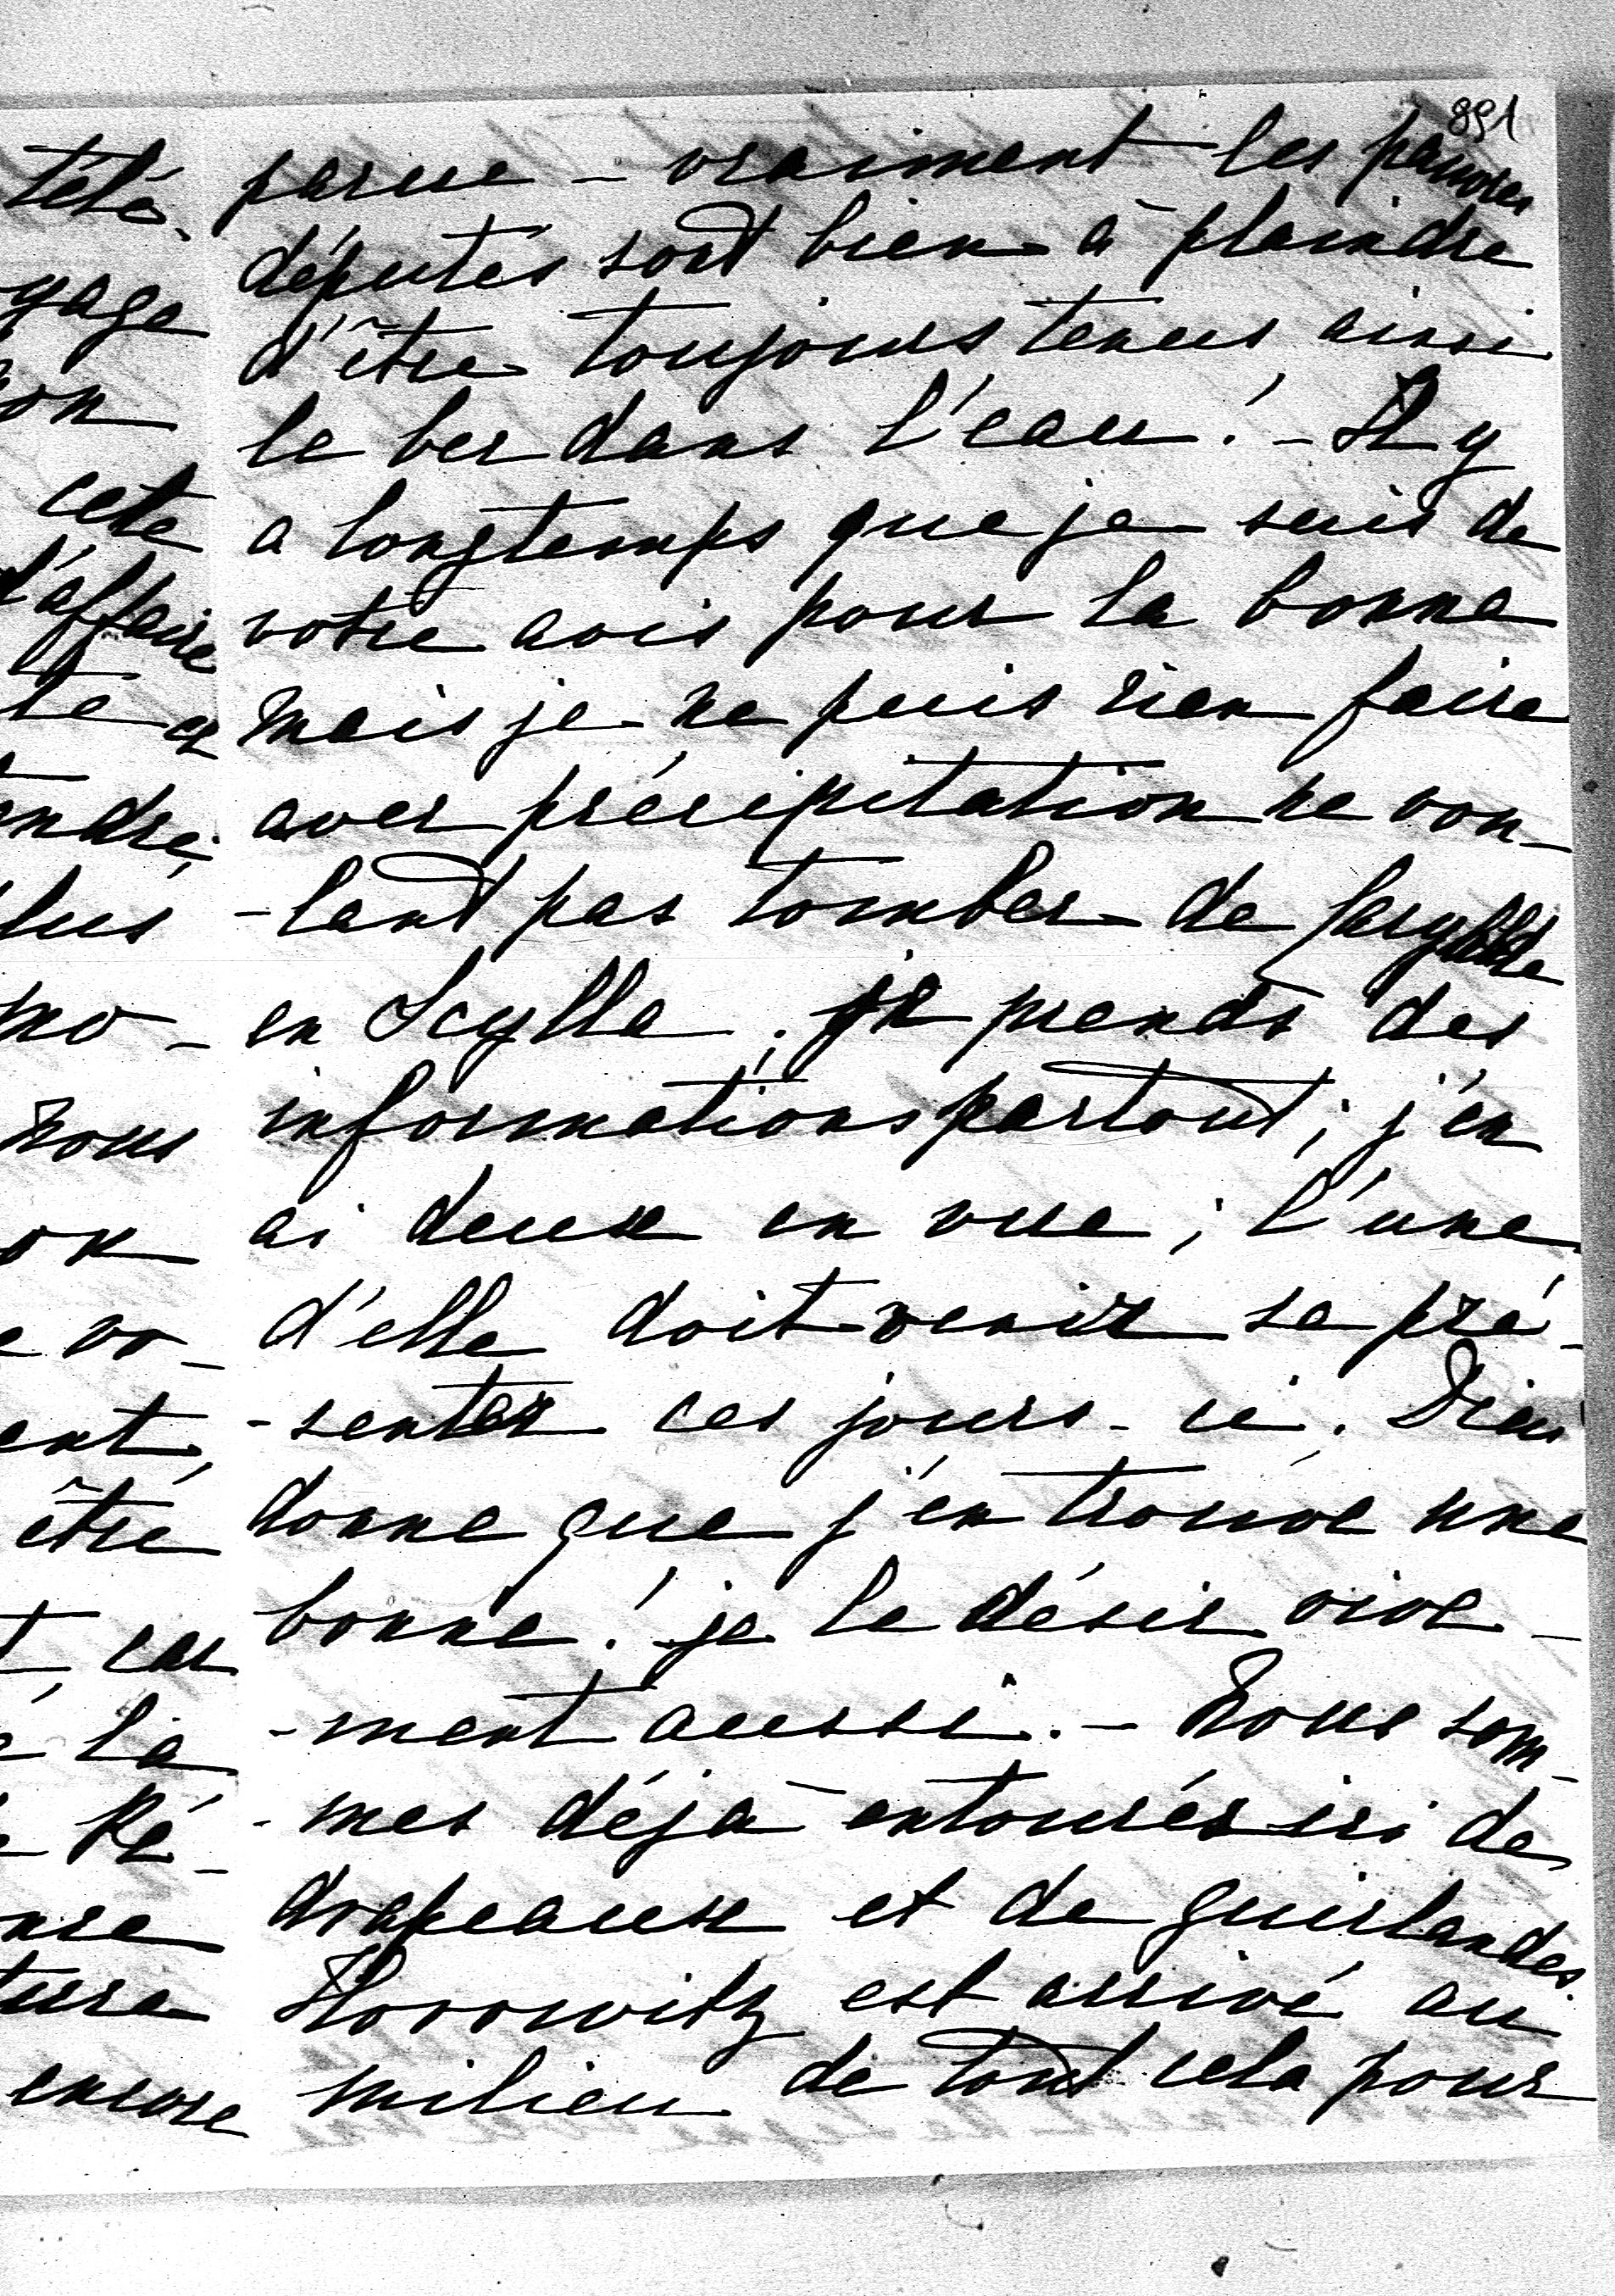 891
parue - vraiment les pauvres
députés sont bien à plaindre
d'être toujours tenus ainsi
le bec dans l'eau! - Il y
a longtemps que je suis de
votre avis pour la bonne
mais je ne puis rien faire
avec précipitation ne vou-
-lant pas tomber de Carybde
en Scylla; je prends des
informations partout; j'en
ai deux en vue; l'une
d'elle doit venir se pré-
-senter ces jours-ci. Dieu
donne que j'en trouve une
bonne! je le désir vive-
-ment aussi. - Nous som-
-mes déjà entourés ici de
drapeaux et de guirlandes.
Horowitz est arrivé au
milieu de tout cela pour
télé-
yage
on
cete
d'affaire
te
endre;
lus
mo-
nous
on
e vo-
ent,
être
t car
la
Ré-
nse
ture
encore